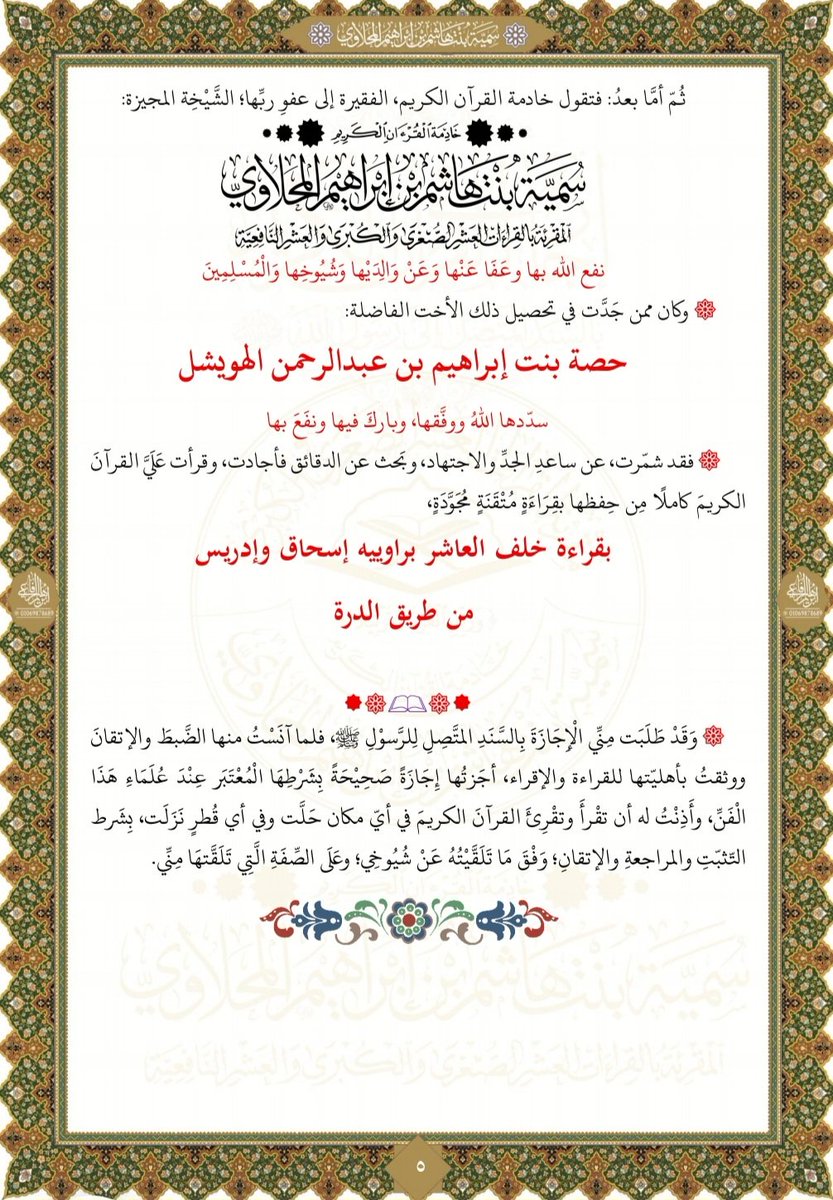 سمية بنت هاشم بن إبراهيم المحلاوي
ثُمّ أمَّا بعدُ: فتقول خادمة القرآن الكريم، الفقيرة إلى عفوِ ربِّها؛ الشَّيْخِة المجيزة:
خَادِمَةُ الْقُرْءَانِ الْكَرِيمِ
سُمَيَّة بِنْت هَاشِم بن إِبْرَاهِيم المحلاوي
المقرئة بالقراءات العشر الصغرى والكبرى والعشر النافعية
نفع الله بها وعَفَا عَنْها وَعَنْ وَالِدَيْها وَشُيُوخِها وَالْمُسْلِمِينَ
وكان ممن جَدَّت في تحصيل ذلك الأخت الفاضلة:
حصة بنت إبراهيم بن عبدالرحمن الهويشل
سدّدها اللهُ ووفَّقها، وباركَ فيها ونفَعَ بها
فقد شمّرت، عن ساعدِ الجدِّ والاجتهاد، وبَحث عن الدقائق فأجادت، وقرأت عَلَيَّ القرآنَ
الكريمَ كاملًا مِن حِفظها بقِرَاءَةٍ مُتْقَنَةٍ مُجَوَّدَةٍ،
بقراءة خلف العاشر براوييه إسحاق وإدريس
من طريق الدرة
وَقَدْ طَلَبَت مِنِّي الْإِجَازَةَ بِالسَّنَدِ المتَّصِلِ لِلرَّسُوْلِ ﷺ، فلما آنَسْتُ منها الضَّبطَ والإتقانَ
ووثقتُ بأهليّتها للقراءة والإقراء، أجَزتُها إجَازَةً صَحِيْحَةً بِشَرْطِهَا الْمُعْتَبَر عِنْدَ عُلَمَاءِ هَذَا
الْفَنِّ، وأَذِنْتُ له أن تقْرأَ وتقْرِئَ القرآنَ الكريمَ في أيّ مكان حَلَّت وفي أي قُطرٍ نَزَلَت، بِشَرط
التّثبّتِ والمراجعةِ والإتقانِ؛ وَفْقَ مَا تَلَقَّيْتُهُ عَنْ شُيُوخِي؛ وعَلَى الصِّفَةِ الَّتِي تَلَقَّتهَا مِنِّي.
خادمة القرءان الكريم
سمية بنت هاشم بن إبراهيم المحلاوي
المقرئة بالقراءات العشر الصغرى والكبرى والعشر النافعية
٥